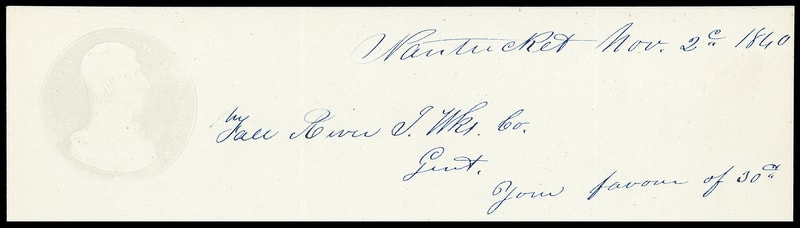 Nantucket Nov. 2d 1860
Fall River I. Wks. Co.
Gent.
Your favour of 30th